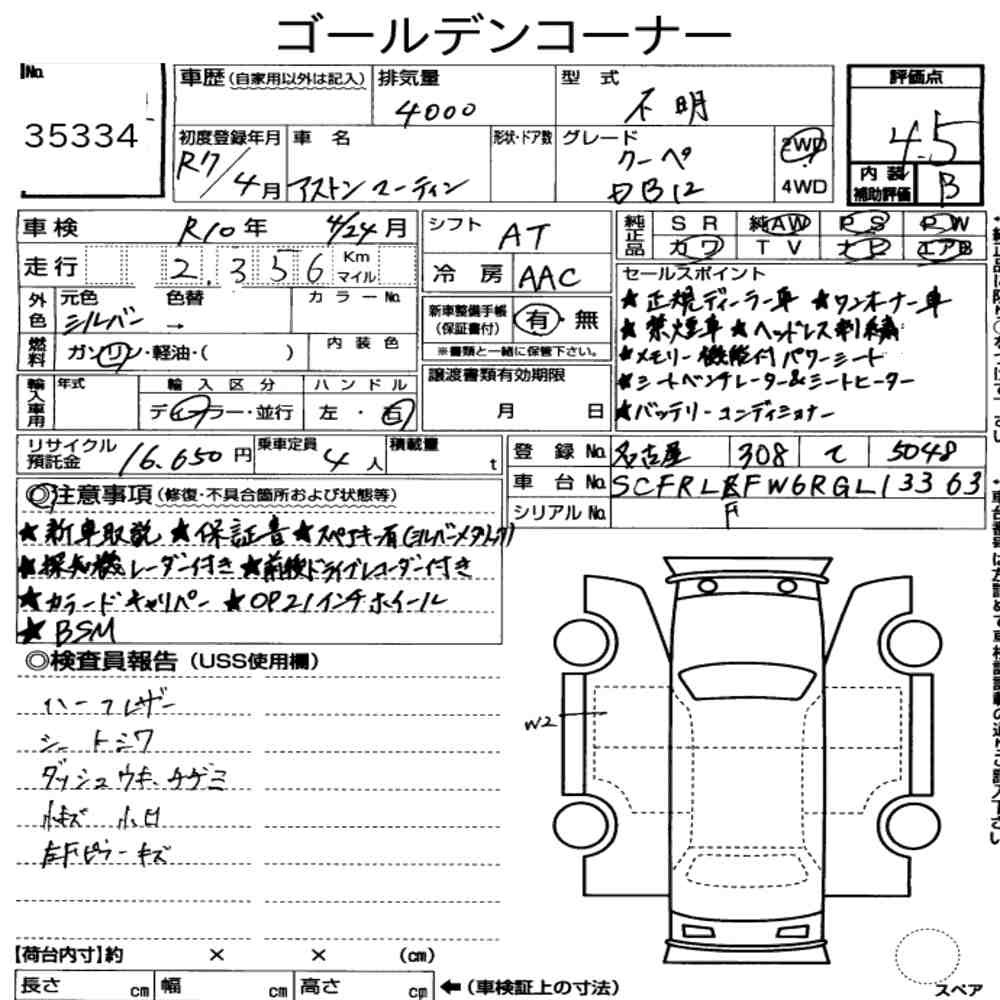 ゴールデンコーナー
No.
35334
車歴(自家用以外は記入)
排気量
4000
型式
不明
評価点
4.5
初度登録年月
R7/4月
車名
アストンマーティン
形状・ドア数
グレード
クーペ
DB12
2WD
4WD
内装補助評価
B
車検
R10年 4/24月
シフト
AT
純正品
SR 純AW PS PW
カワ TV ナビ エアB
走行
2,356
Km
マイル
冷房
AAC
セールスポイント
★正規ディーラー車 ★ワンオーナー車
★禁煙車★ヘッドレス刺繍
★メモリー機能付パワーシート
★シートベンチレーター&シートヒーター
★バッテリーコンディショナー
外色
元色
シルバー
色替
→
カラーNo.
新車整備手帳
(保証書付)
有・無
※書類と一緒に保管下さい。
燃料
ガソリン・軽油・( )
内装色
譲渡書類有効期限
月 日
輸入車用
年式
輸入区分
ディーラー・並行
ハンドル
左・右
リサイクル預託金
16.650円
乗車定員
4人
積載量
t
登録No.
名古屋 308 て 5048
車台No.
SCFRLFFW6RGL13363
F
シリアルNo.
◎注意事項(修復・不具合箇所および状態等)
★新車取説 ★保証書 ★スペアキー有(シルバーメタリック)
★探知機レーダー付き★前後ドライブレコーダー付き
★カラードキャリパー ★OP21インチホイール
★BSM
◎検査員報告(USS使用欄)
ハーフレザー
シートシワ
ダッシュウキ、チヂミ
小キズ 小凹
左Fピラーキズ
W2
【荷台内寸】約 × × (cm)
長さ cm 幅 cm 高さ cm
←(車検証上の寸法)
スペア